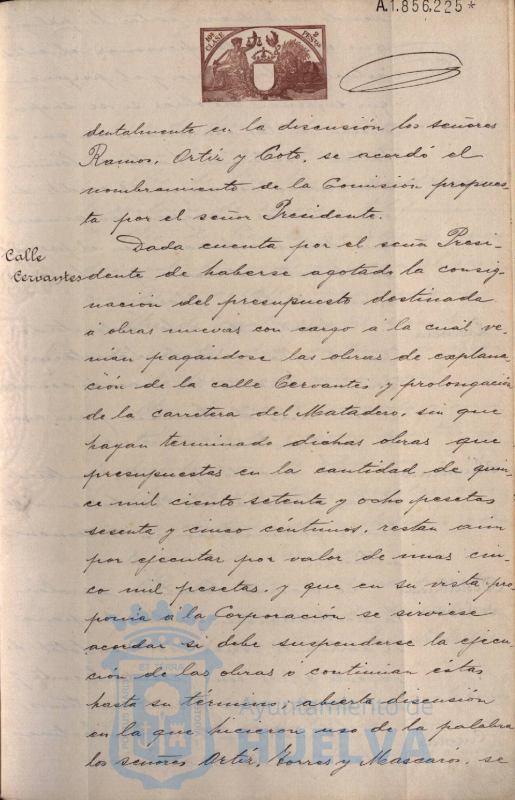 A.1.856.225*
10ª CLASE 2 PESETAS
dentalmente en la discusión los señores
Ramos, Ortíz y Coto, se acordó el
nombramiento de la Comisión propues
ta por el señor Presidente.
Calle
Cervantes
Dada cuenta por el señor Presi-
dente de haberse agotado la consig-
nación del presupuesto destinada
á obras nuevas con cargo á la cual ve-
nian pagándose las obras de explana-
ción de la calle Cervantes y prolongación
de la carretera del Matadero, sin que
hayan terminado dichas obras que
presupuestas en la cantidad de quin-
ce mil ciento setenta y ocho pesetas
sesenta y cinco céntimos, restan aún
por ejecutar por valor de unas cin-
co mil pesetas, y que en su vista pro-
ponia á la Corporación se sirviese
acordar si debe suspenderse la ejecu-
ción de las obras ó continuan éstas
hasta su término; abierta discusión
en la que hicieron uso de la palabra
los señores Ortíz, Torres y Mascarós, se
Ayuntamiento de
HUELVA